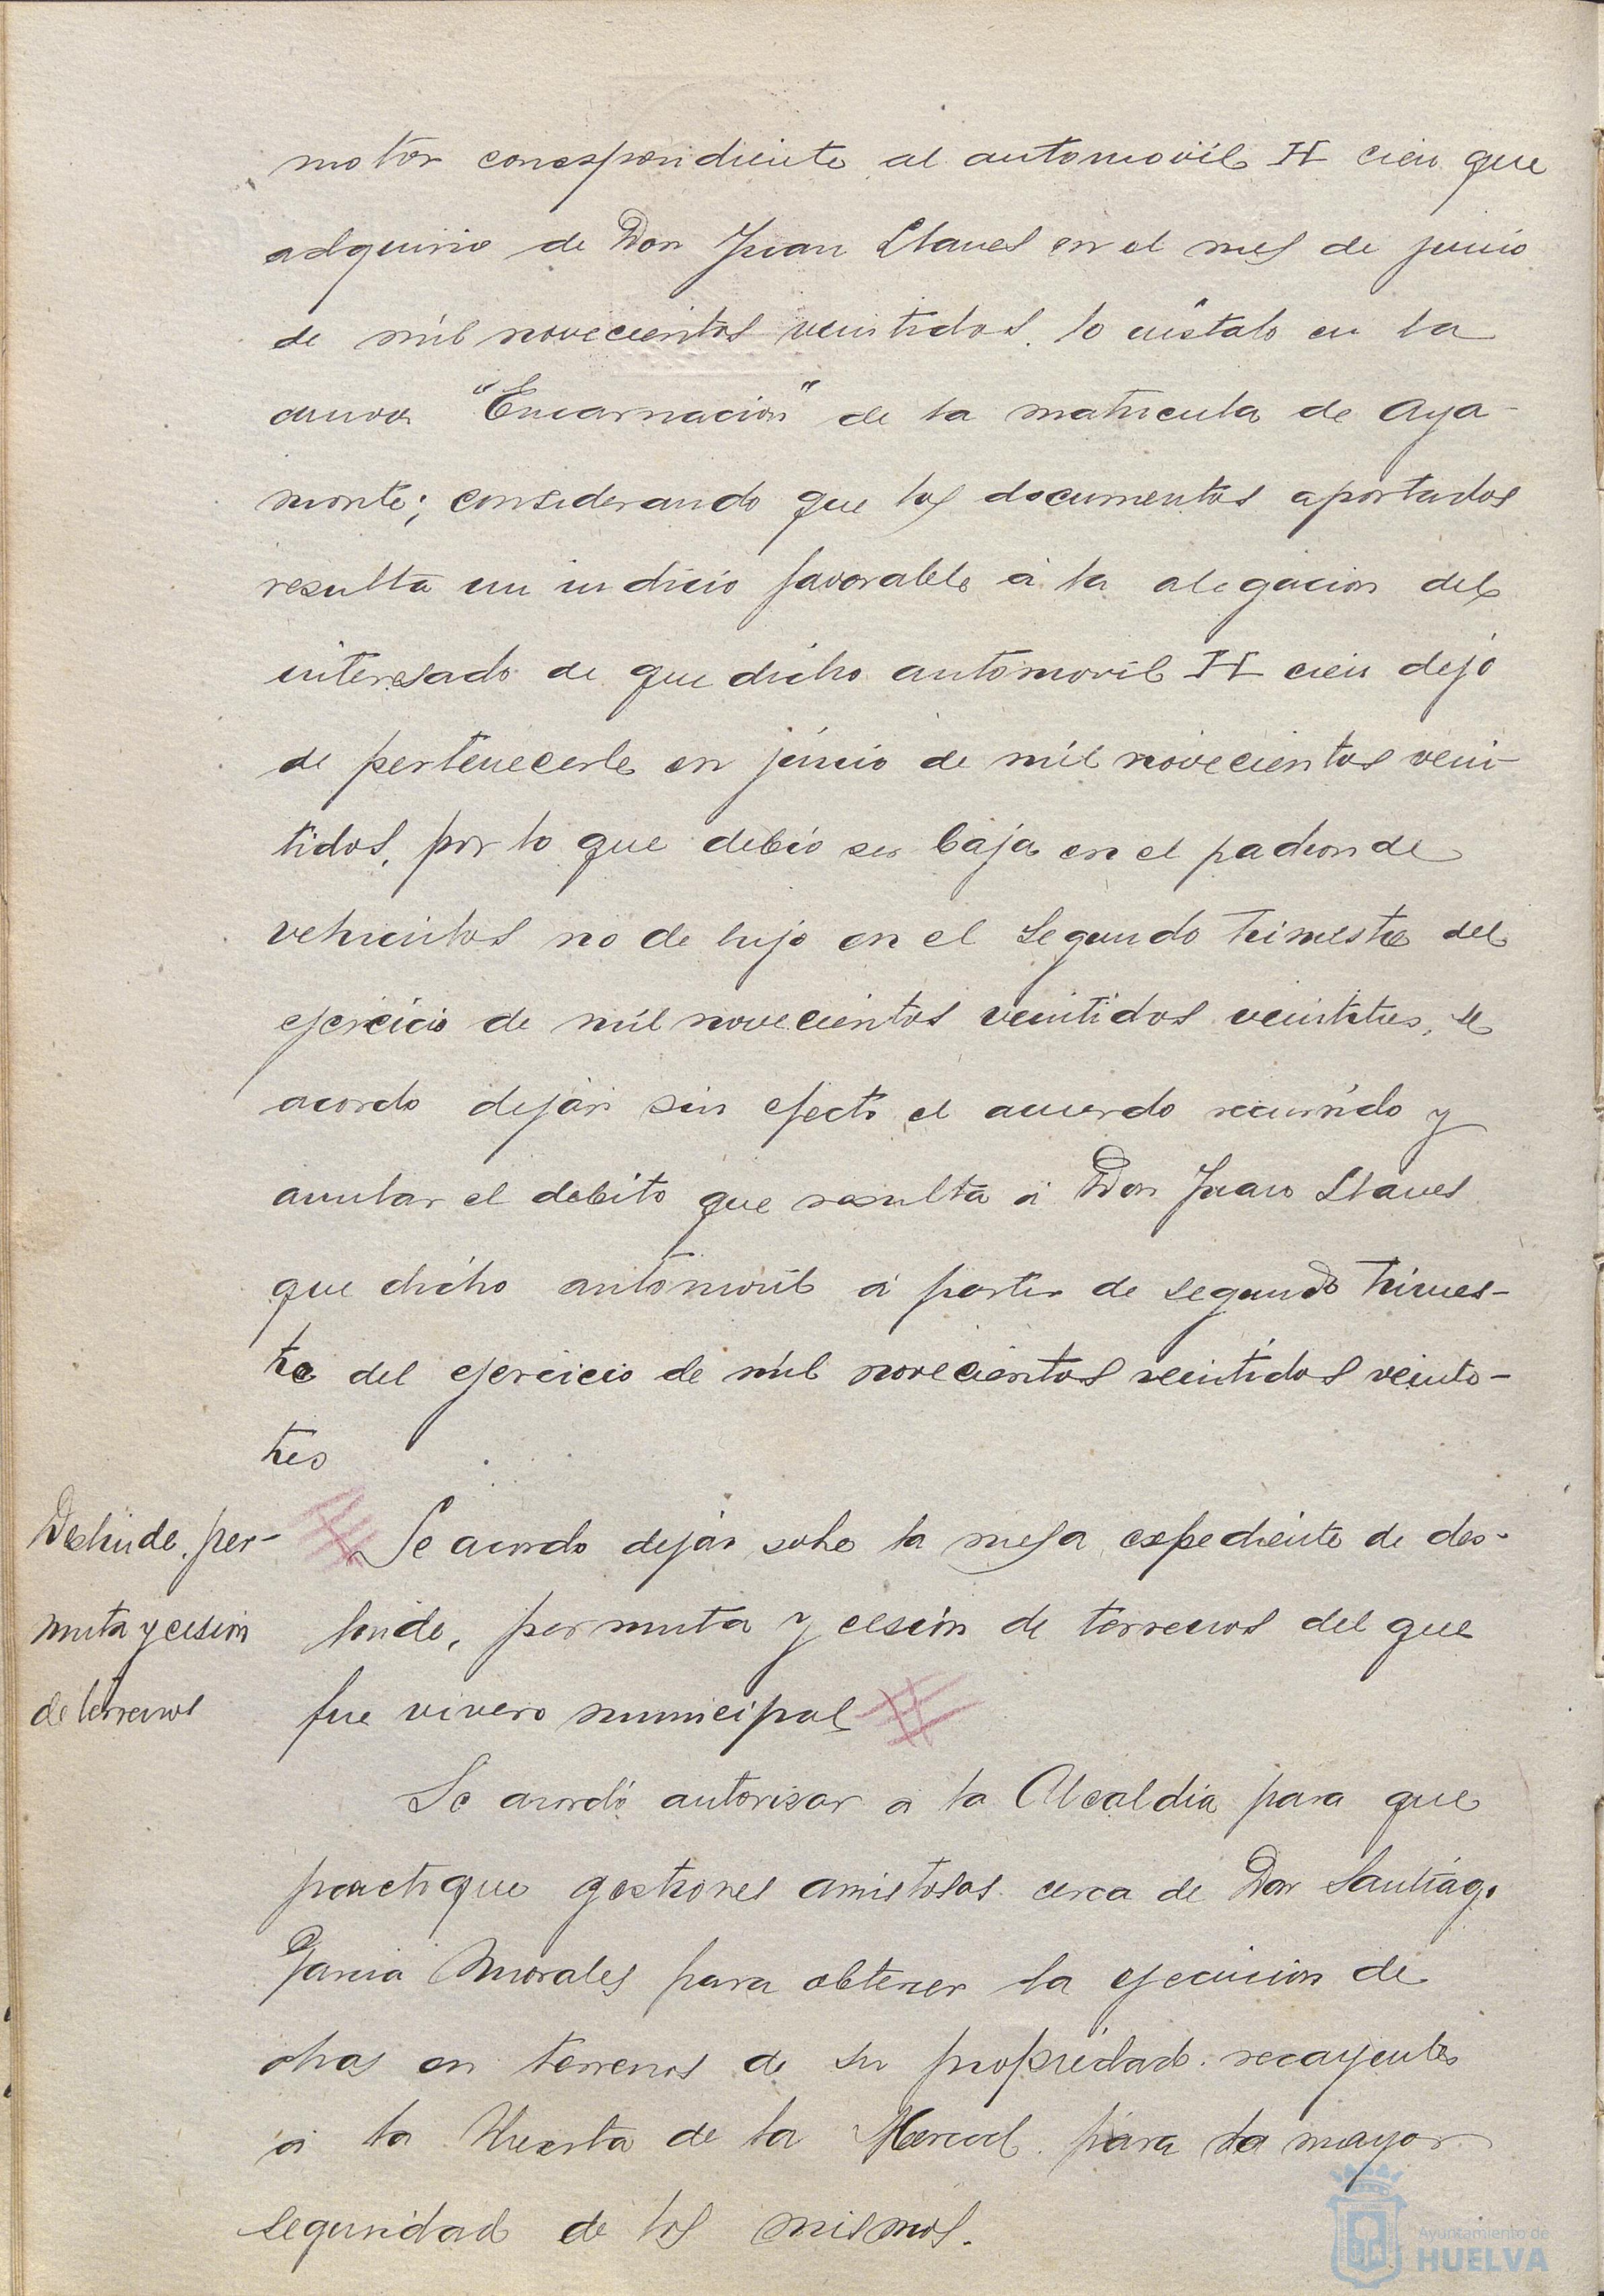 motor correspondiente al automovil H cien que
adquirio de Don Juan Llanes en el mes de junio
de mil novecientos veintidos lo instalo en la
canoa "Encarnacion" de la matricula de Aya-
monte; considerando que los documentos aportados
resulta un indicio favorable á la alegacion del
interesado de que dicho automovil H cien dejó
de pertenecerle en junio de mil novecientos vein-
tidos, por lo que debió ser baja en el padron de
vehiculos no de lujo en el segundo trimestre del
ejercicio de mil novecientos veintidos veintitres, se
acordo dejar sin efecto el acuerdo recurrido y
anular el debito que resulta á Don Juan Llanes
que dicho automovil á partir de segundo trimes-
tre del ejercicio de mil novecientos veintidos veinti-
tres
Deslinde, per-
muta y cesion
de terrenos
Se acordo dejar sobre la mesa expediente de des-
linde, permuta y cesión de terrenos del que
fue vivero municipal
Se acordó autorisar a la Alcaldia para que
practique gestiones amistosas cerca de Don Santiago
Garcia Morales para obtener la ejecucion de
obras en terrenos de su propiedad recayentes
á la Huerta de la Merced para la mayor
seguridad de los mismos.
Ayuntamiento de
HUELVA